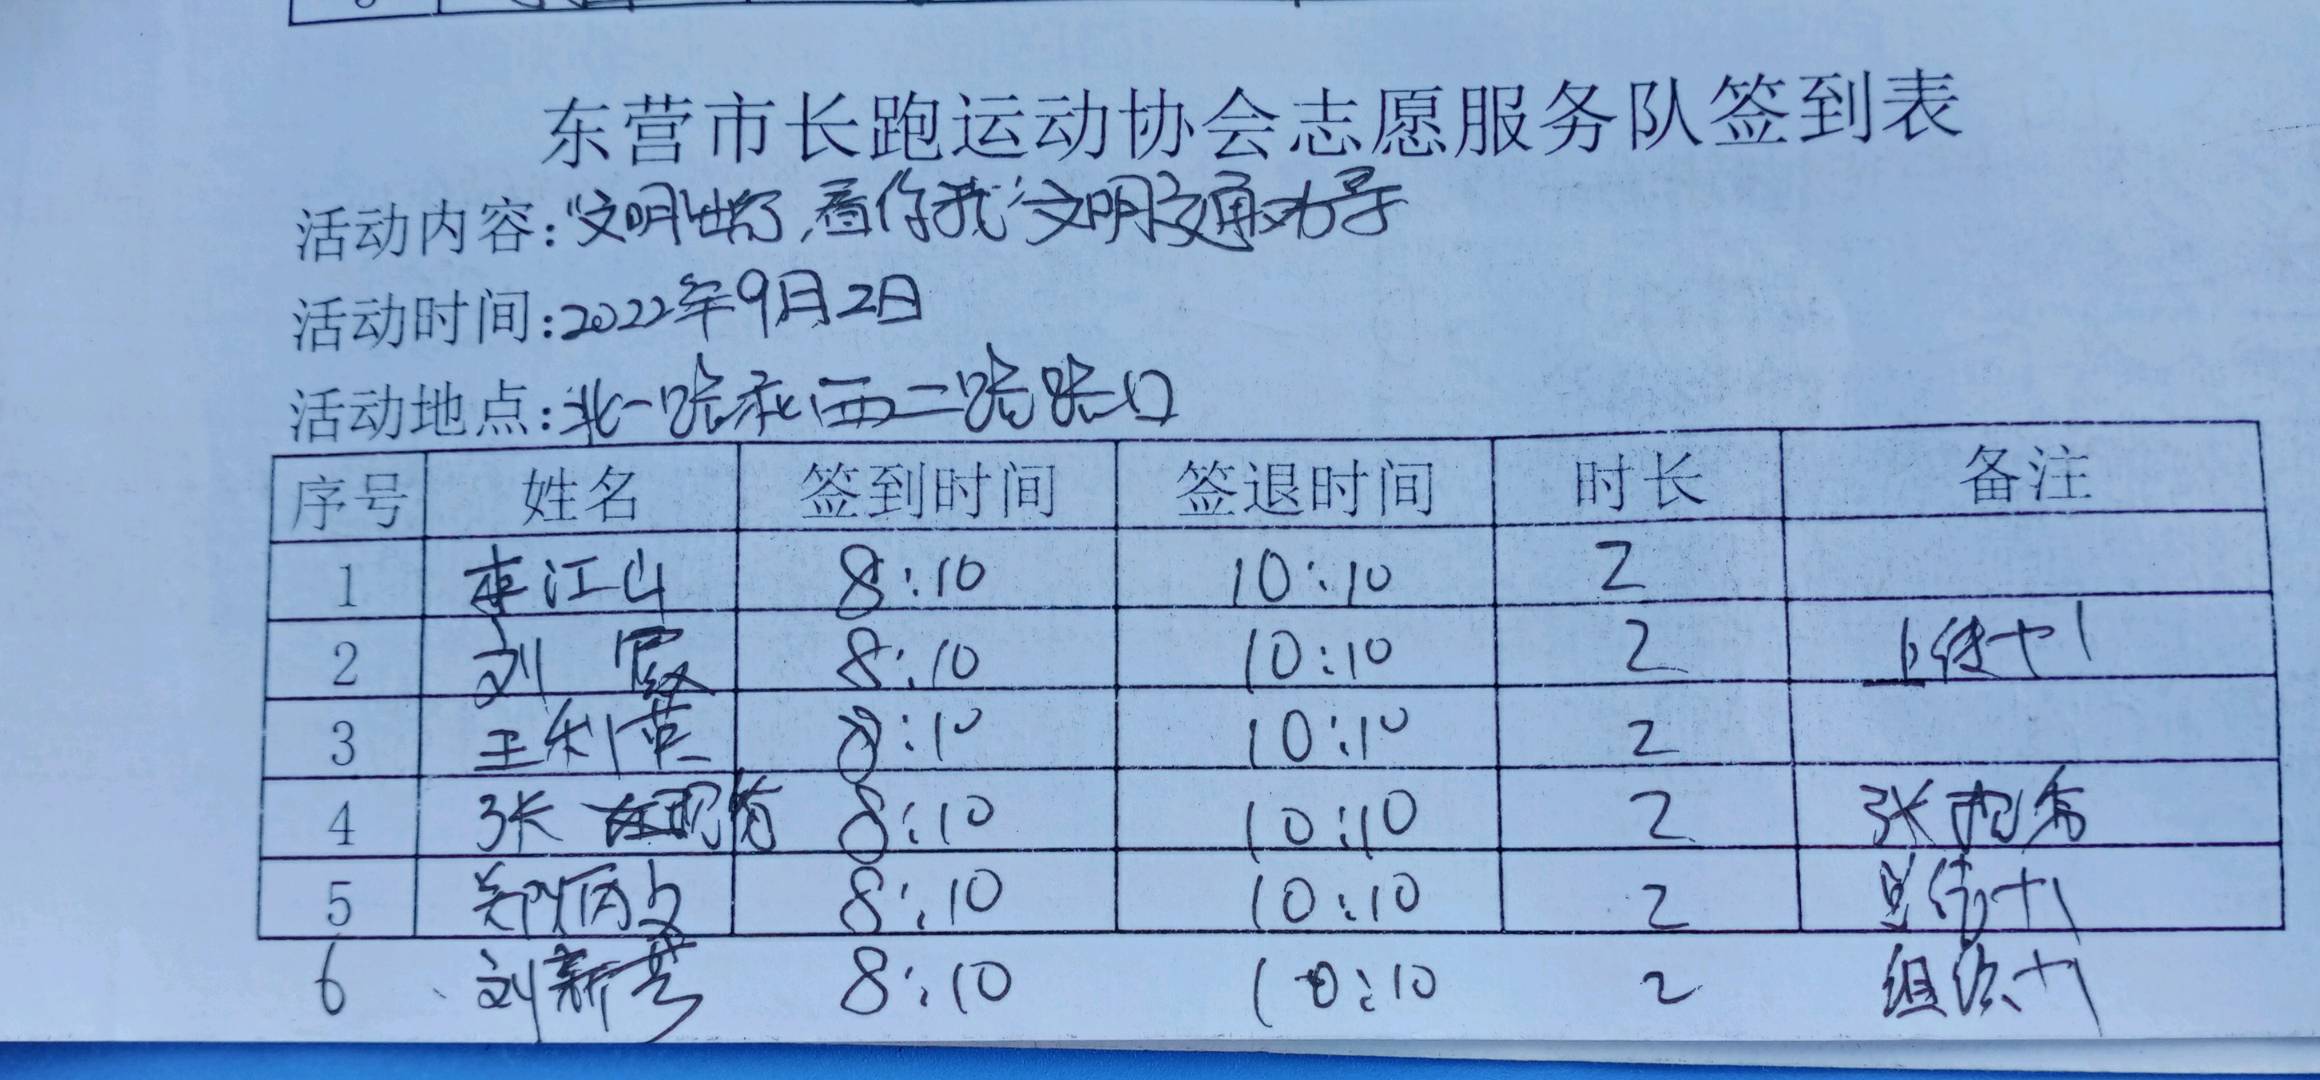 东营市长跑运动协会志愿服务队签到表
活动内容:“文明出行,看你我”文明交通劝导
活动时间:2022年9月2日
活动地点:北一路和西二路路口
序号 姓名 签到时间 签退时间 时长 备注
1 李江山 8:10 10:10 2
2 刘霞 8:10 10:10 2 上传+1
3 王利英 8:10 10:10 2
4 张 8:10 10:10 2 张
5 郑丙文 8:10 10:10 2 总结+1
6 刘新芳 8:10 10:10 2 组织+1